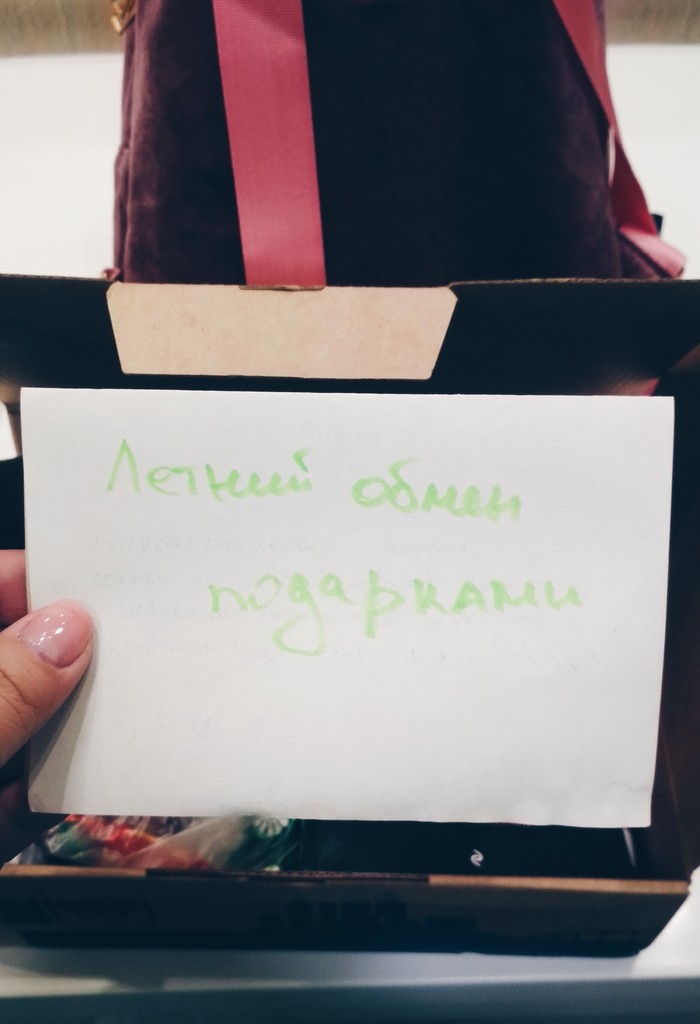 Летний обмен
подарками